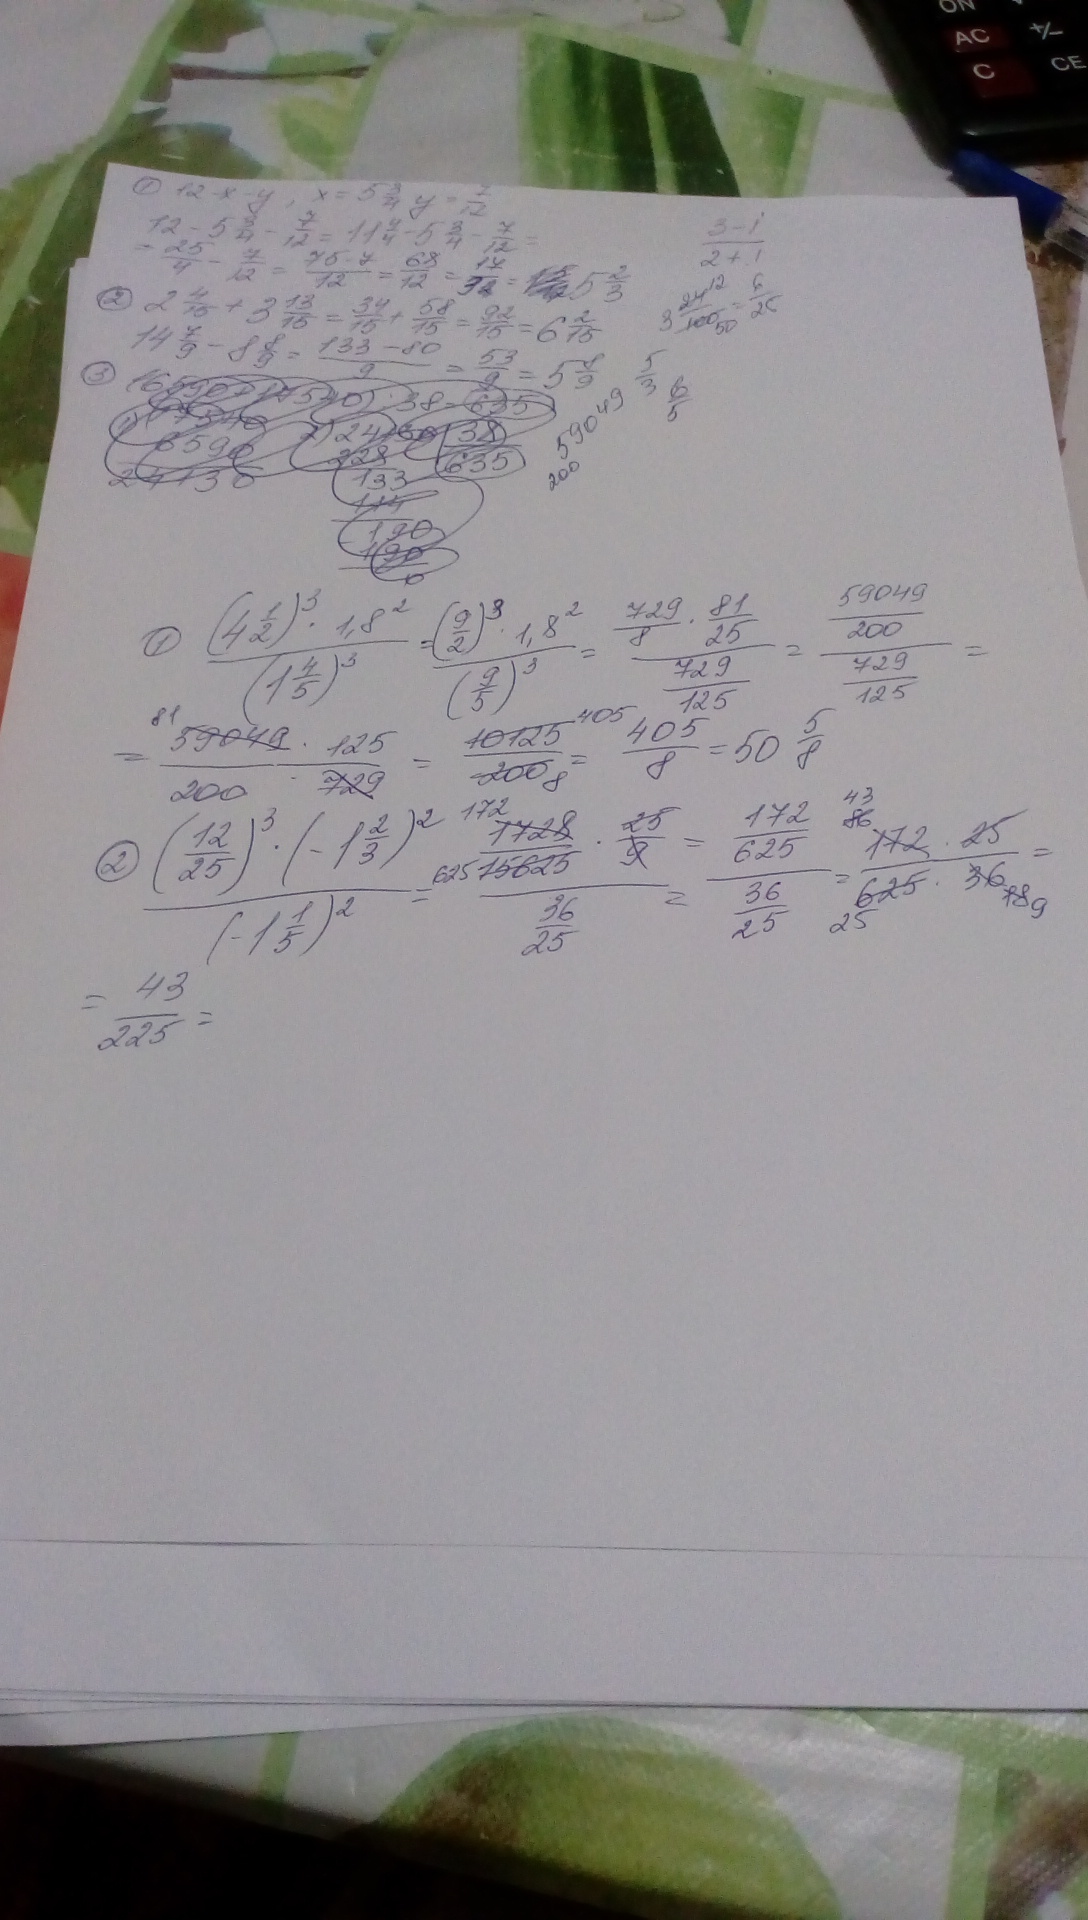 ON
AC +/-
C CE
① 12-x-y, x=5 3/4 y=7/12
12 - 5 3/4 - 7/12 = 11 4/4 - 5 3/4 - 7/12 =
= 25/4 - 7/12 = 75-7/12 = 68/12 = 17/3 = 5 2/3
3-1/2+1
② 2 4/15 + 3 13/15 = 34/15 + 58/15 = 92/15 = 6 2/15
3 24/100 12/50 = 6/25
14 7/9 - 8 8/9 = 133-80/9 = 53/9 = 5 8/9
5/3 6/5
③
59049
200
24130 38
228 635
133
114
190
190
0
① (4 1/2)³ · 1,8² / (1 4/5)³ = (9/2)³ · 1,8² / (9/5)³ = 729/8 · 81/25 / 729/125 = 59049/200 / 729/125 =
= 81 59049 · 125 / 200 · 729 = 10125 405 / 200 8 = 405/8 = 50 5/8
② (12/25)³ · (-1 2/3)² / (-1 1/5)² = 172 1728 / 625 15625 · 25/9 / 36/25 = 172/625 / 36/25 = 43 86 172 · 25 / 625 25 · 36 18 9 =
= 43/225 =